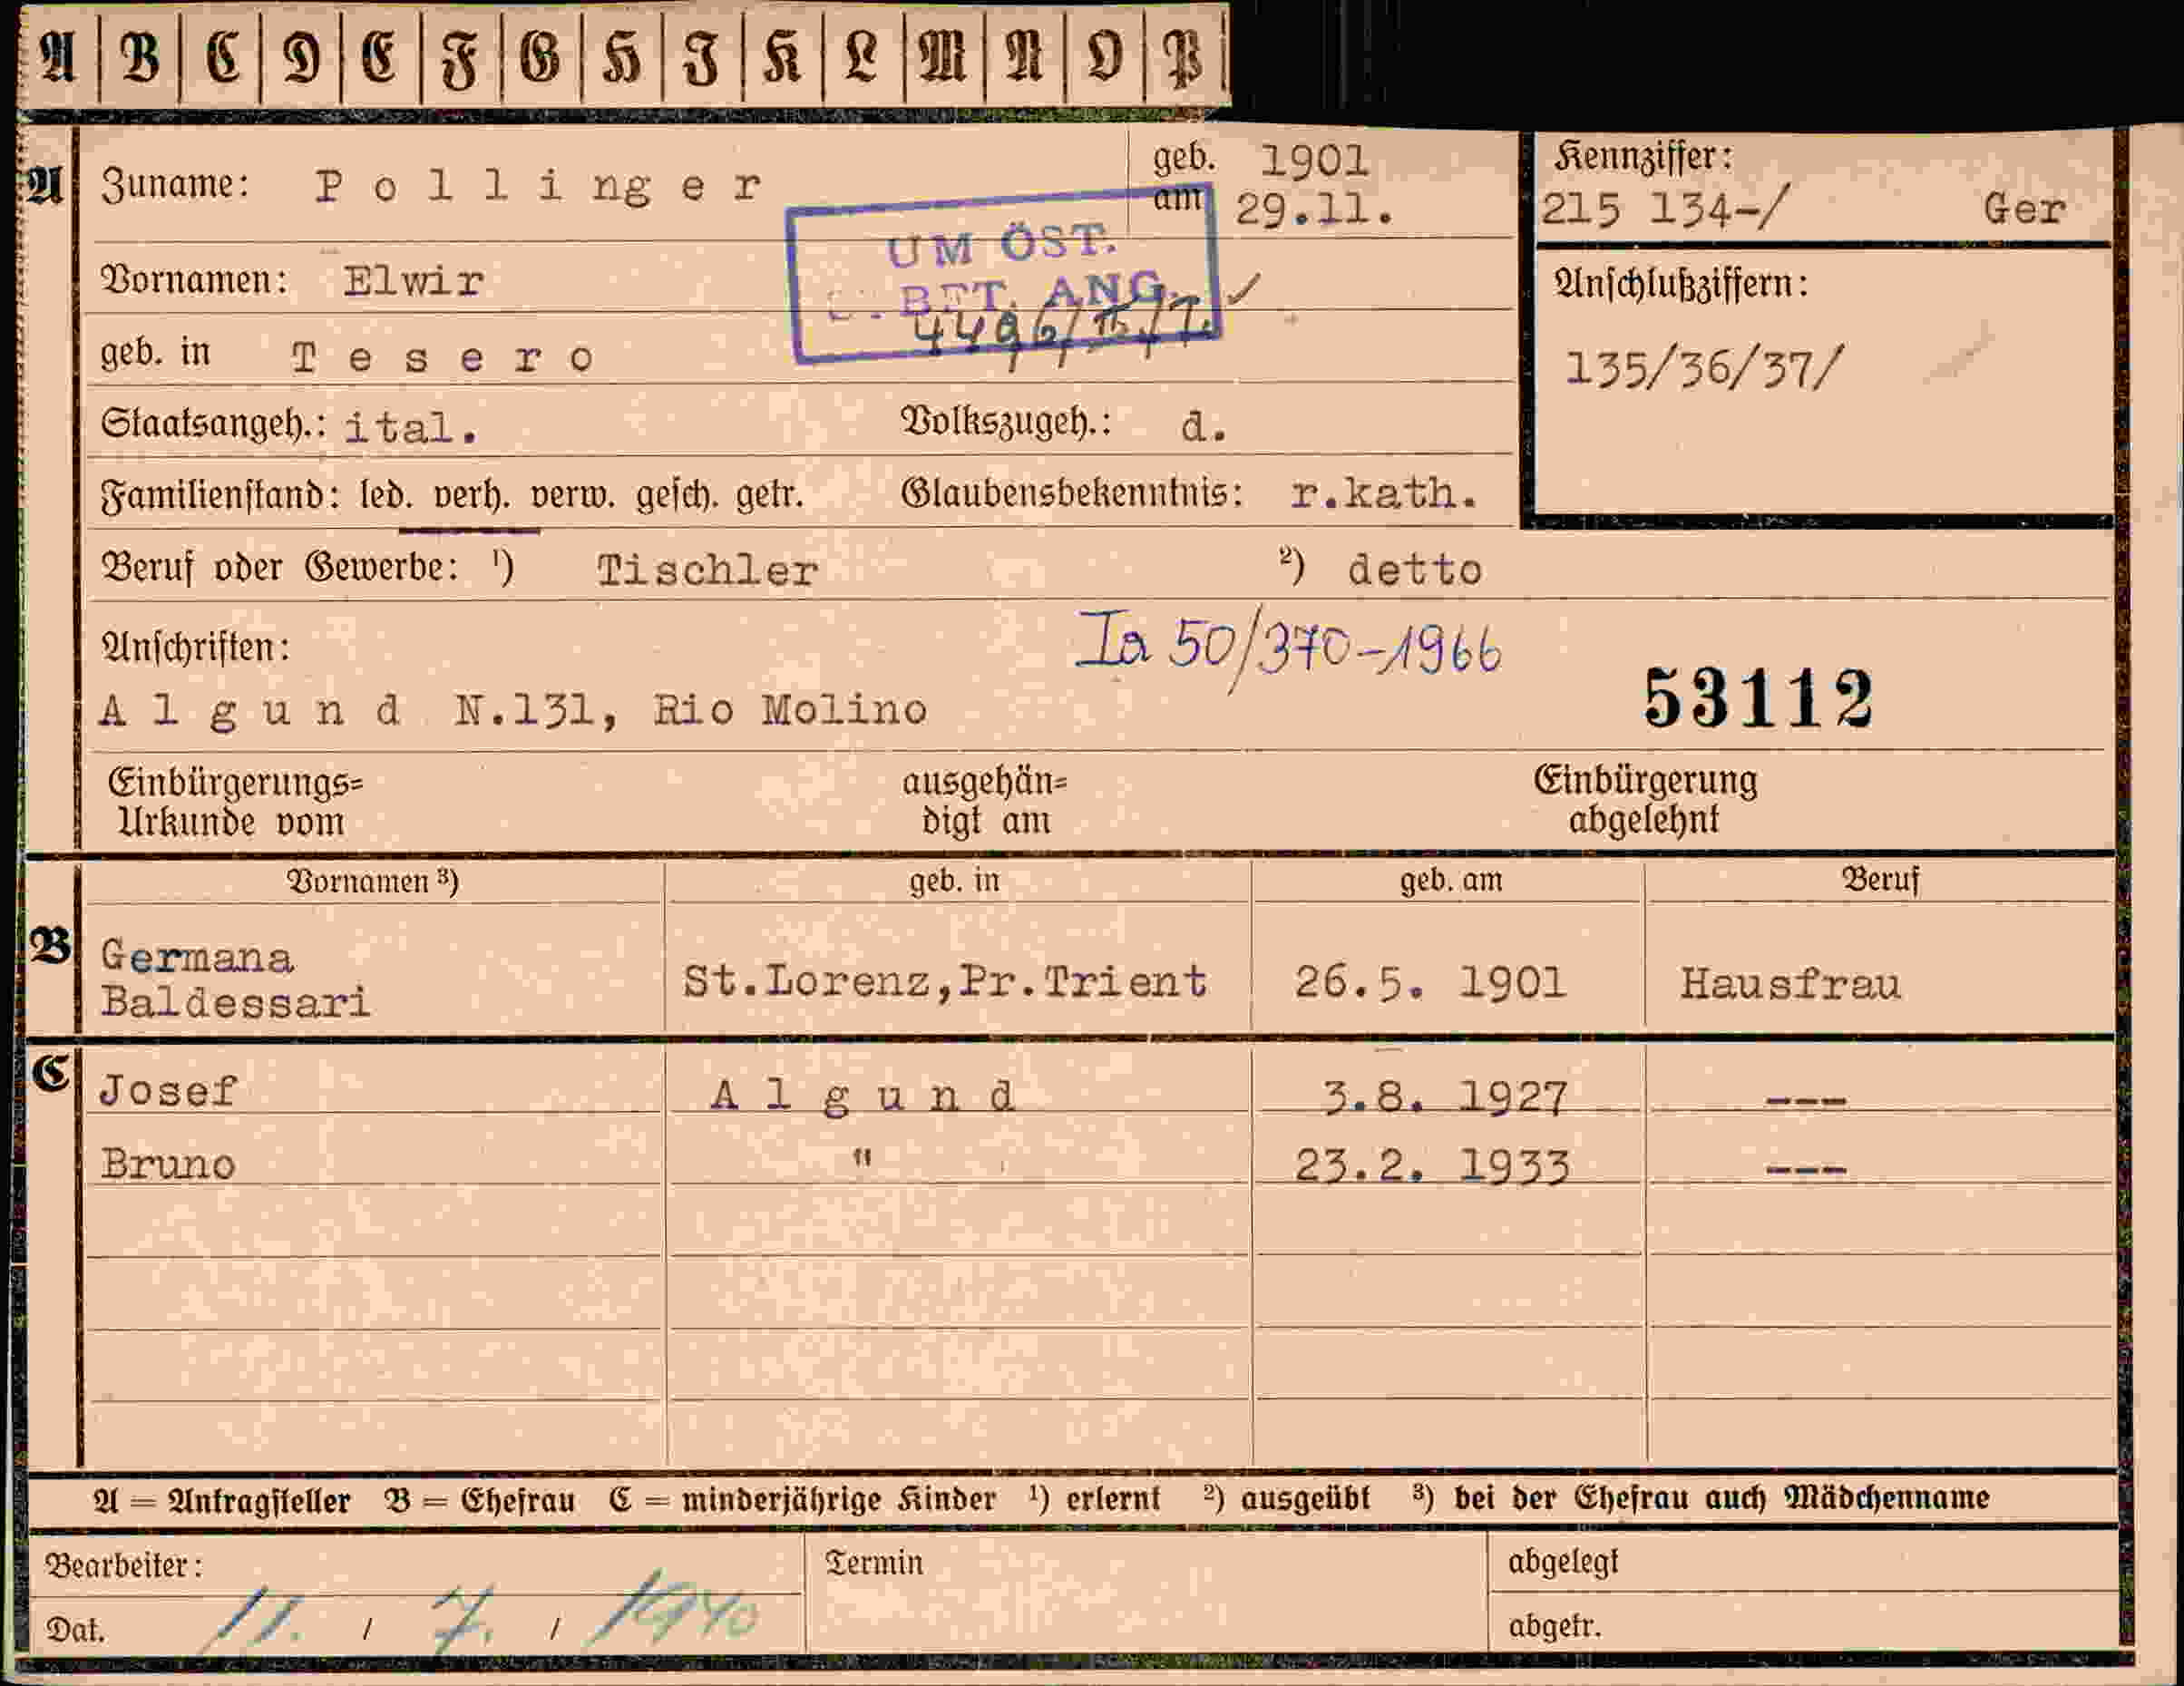 A B C D E F G H I K L M N O P
A Zuname: Pollinger geb. am 1901 29.11.
Kennziffer:
215 134-/ Ger
UM ÖST.
BET. ANG.
Vornamen: Elwir
4496/II/7. ✓
Anschlußziffern:
geb. in Tesero
135/36/37/
Staatsangeh.: ital. Volkszugeh.: d.
Familienstand: led. verh. verw. gesch. getr. Glaubensbekenntnis: r.kath.
Beruf oder Gewerbe: ¹) Tischler ²) detto
Anschriften:
Ia 50/370-1966
Algund N.131, Rio Molino
53112
Einbürgerungs= ausgehän= Einbürgerung
Urkunde vom digt am abgelehnt
Vornamen ³) geb. in geb. am Beruf
B Germana
Baldessari St.Lorenz,Pr.Trient 26.5. 1901 Hausfrau
C Josef Algund 3.8. 1927 ---
Bruno " 23.2. 1933 ---
A = Antragsteller B = Ehefrau C = minderjährige Kinder ¹) erlernt ²) ausgeübt ³) bei der Ehefrau auch Mädchenname
Bearbeiter: Termin abgelegt
Dat. 11. / 7. / 1940 abgetr.